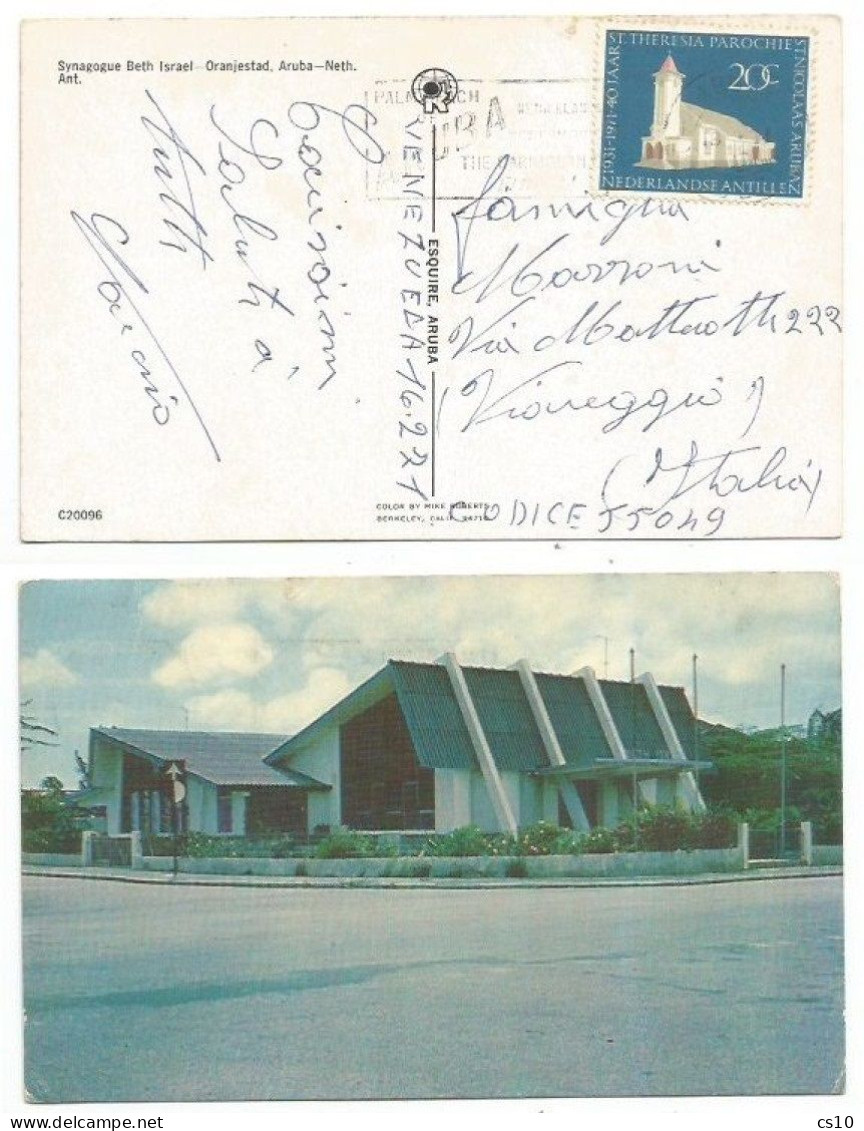 Synagogue Beth Israel—Oranjestad, Aruba—Neth.
Ant.
PALM BEACH
ARUBA
THE CARIBBEAN
1931-1971-40 JAAR ST. THERESIA PAROCHIE ST. NICOLAAS ARUBA
20c
NEDERLANDSE ANTILLEN
Carissimi
Saluti a
tutti
VENEZUELA 16.2.71
ESQUIRE, ARUBA
Famiglia
Via Matteotti 222
(Viareggio)
(Italia)
CODICE 55049
C20096
COLOR BY MIKE ROBERTS
BERKELEY, CALIF. 94710
cs10